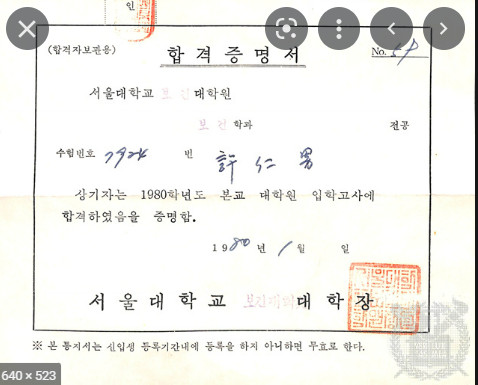 인
(합격자보관용)
합격증명서
No. 59
서울대학교 보건대학원
보건 학과 전공
수험번호 7924 번 許仁男
상기자는 1980학년도 본교 대학원 입학고사에
합격하였음을 증명함.
1980년 1월 일
서울대학교 보건대학 대학장
※ 본 통지서는 신입생 등록기간내에 등록을 하지 아니하면 무효로 한다.
640 × 523